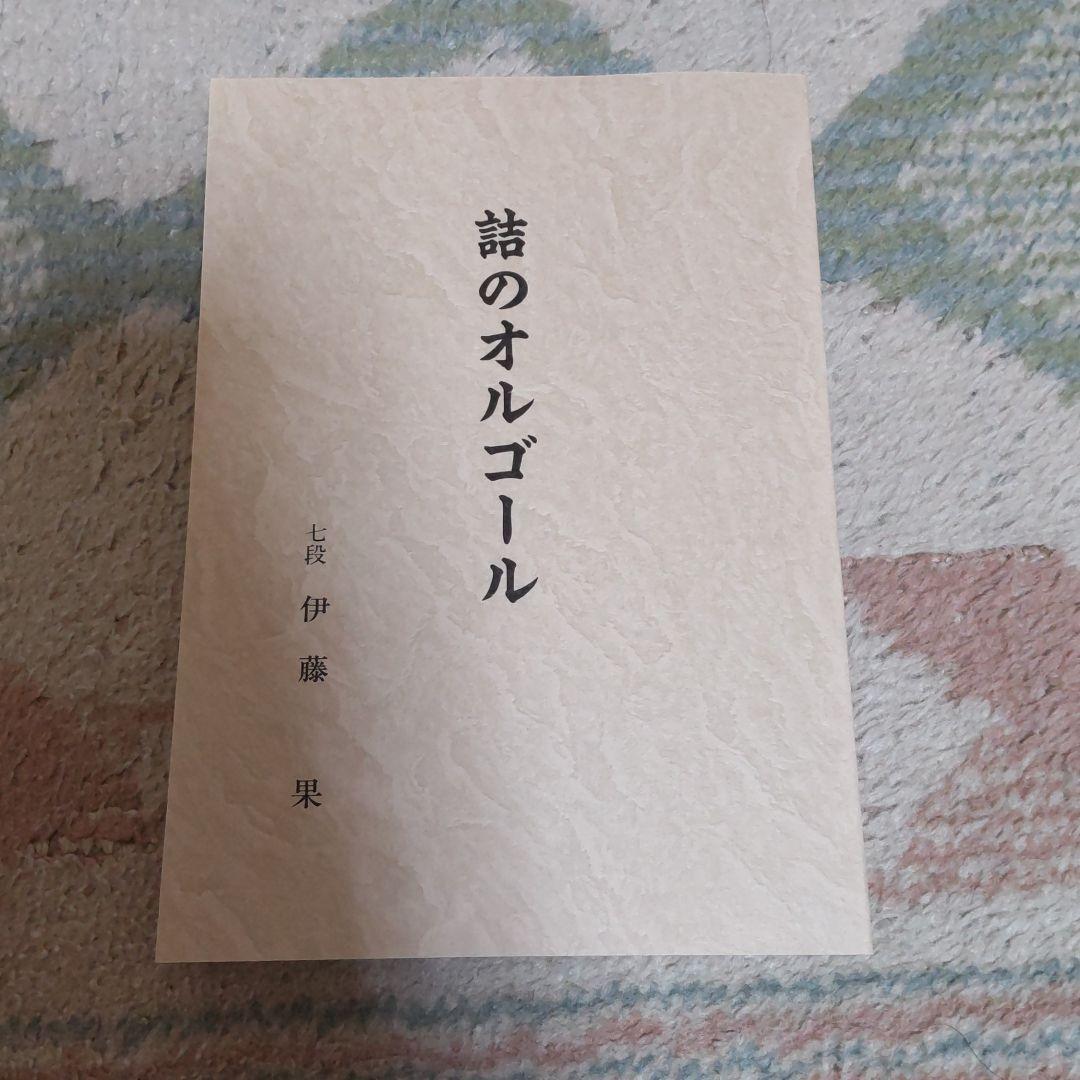 詰のオルゴール
七段 伊藤 果